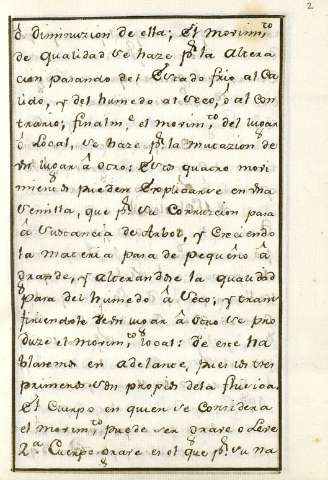 2
ó Diminuzion de ella; El morim.to
de qualidad se haze pr. la altera
cion pasando del Estado frio al Ca
lido, y del humedo al seco, ó al con
trario; finalm.e el morim.to del lugar
ó Local, se haze pr. la mutazion de
Un lugar â otro: Estos quatro mori
mientos pueden Explicarse en una
semilla, que pr. su Corrupcion pasa
â sustancia de Arbol, y Creciendo
la materia pasa de pequeño â
grande, y alterandose la qualidad
pasa del humedo â seco; y trans
firiendose de Un lugar â otro se pro
duze el morim.to local: de este ha
blaremos en adelante, pues los tres
primeros son propios dela fisica.
El Cuerpo en quien se Considera
el morim.to puede ser grave o Leve
2.a Cuerpo grave es el que pr. su na